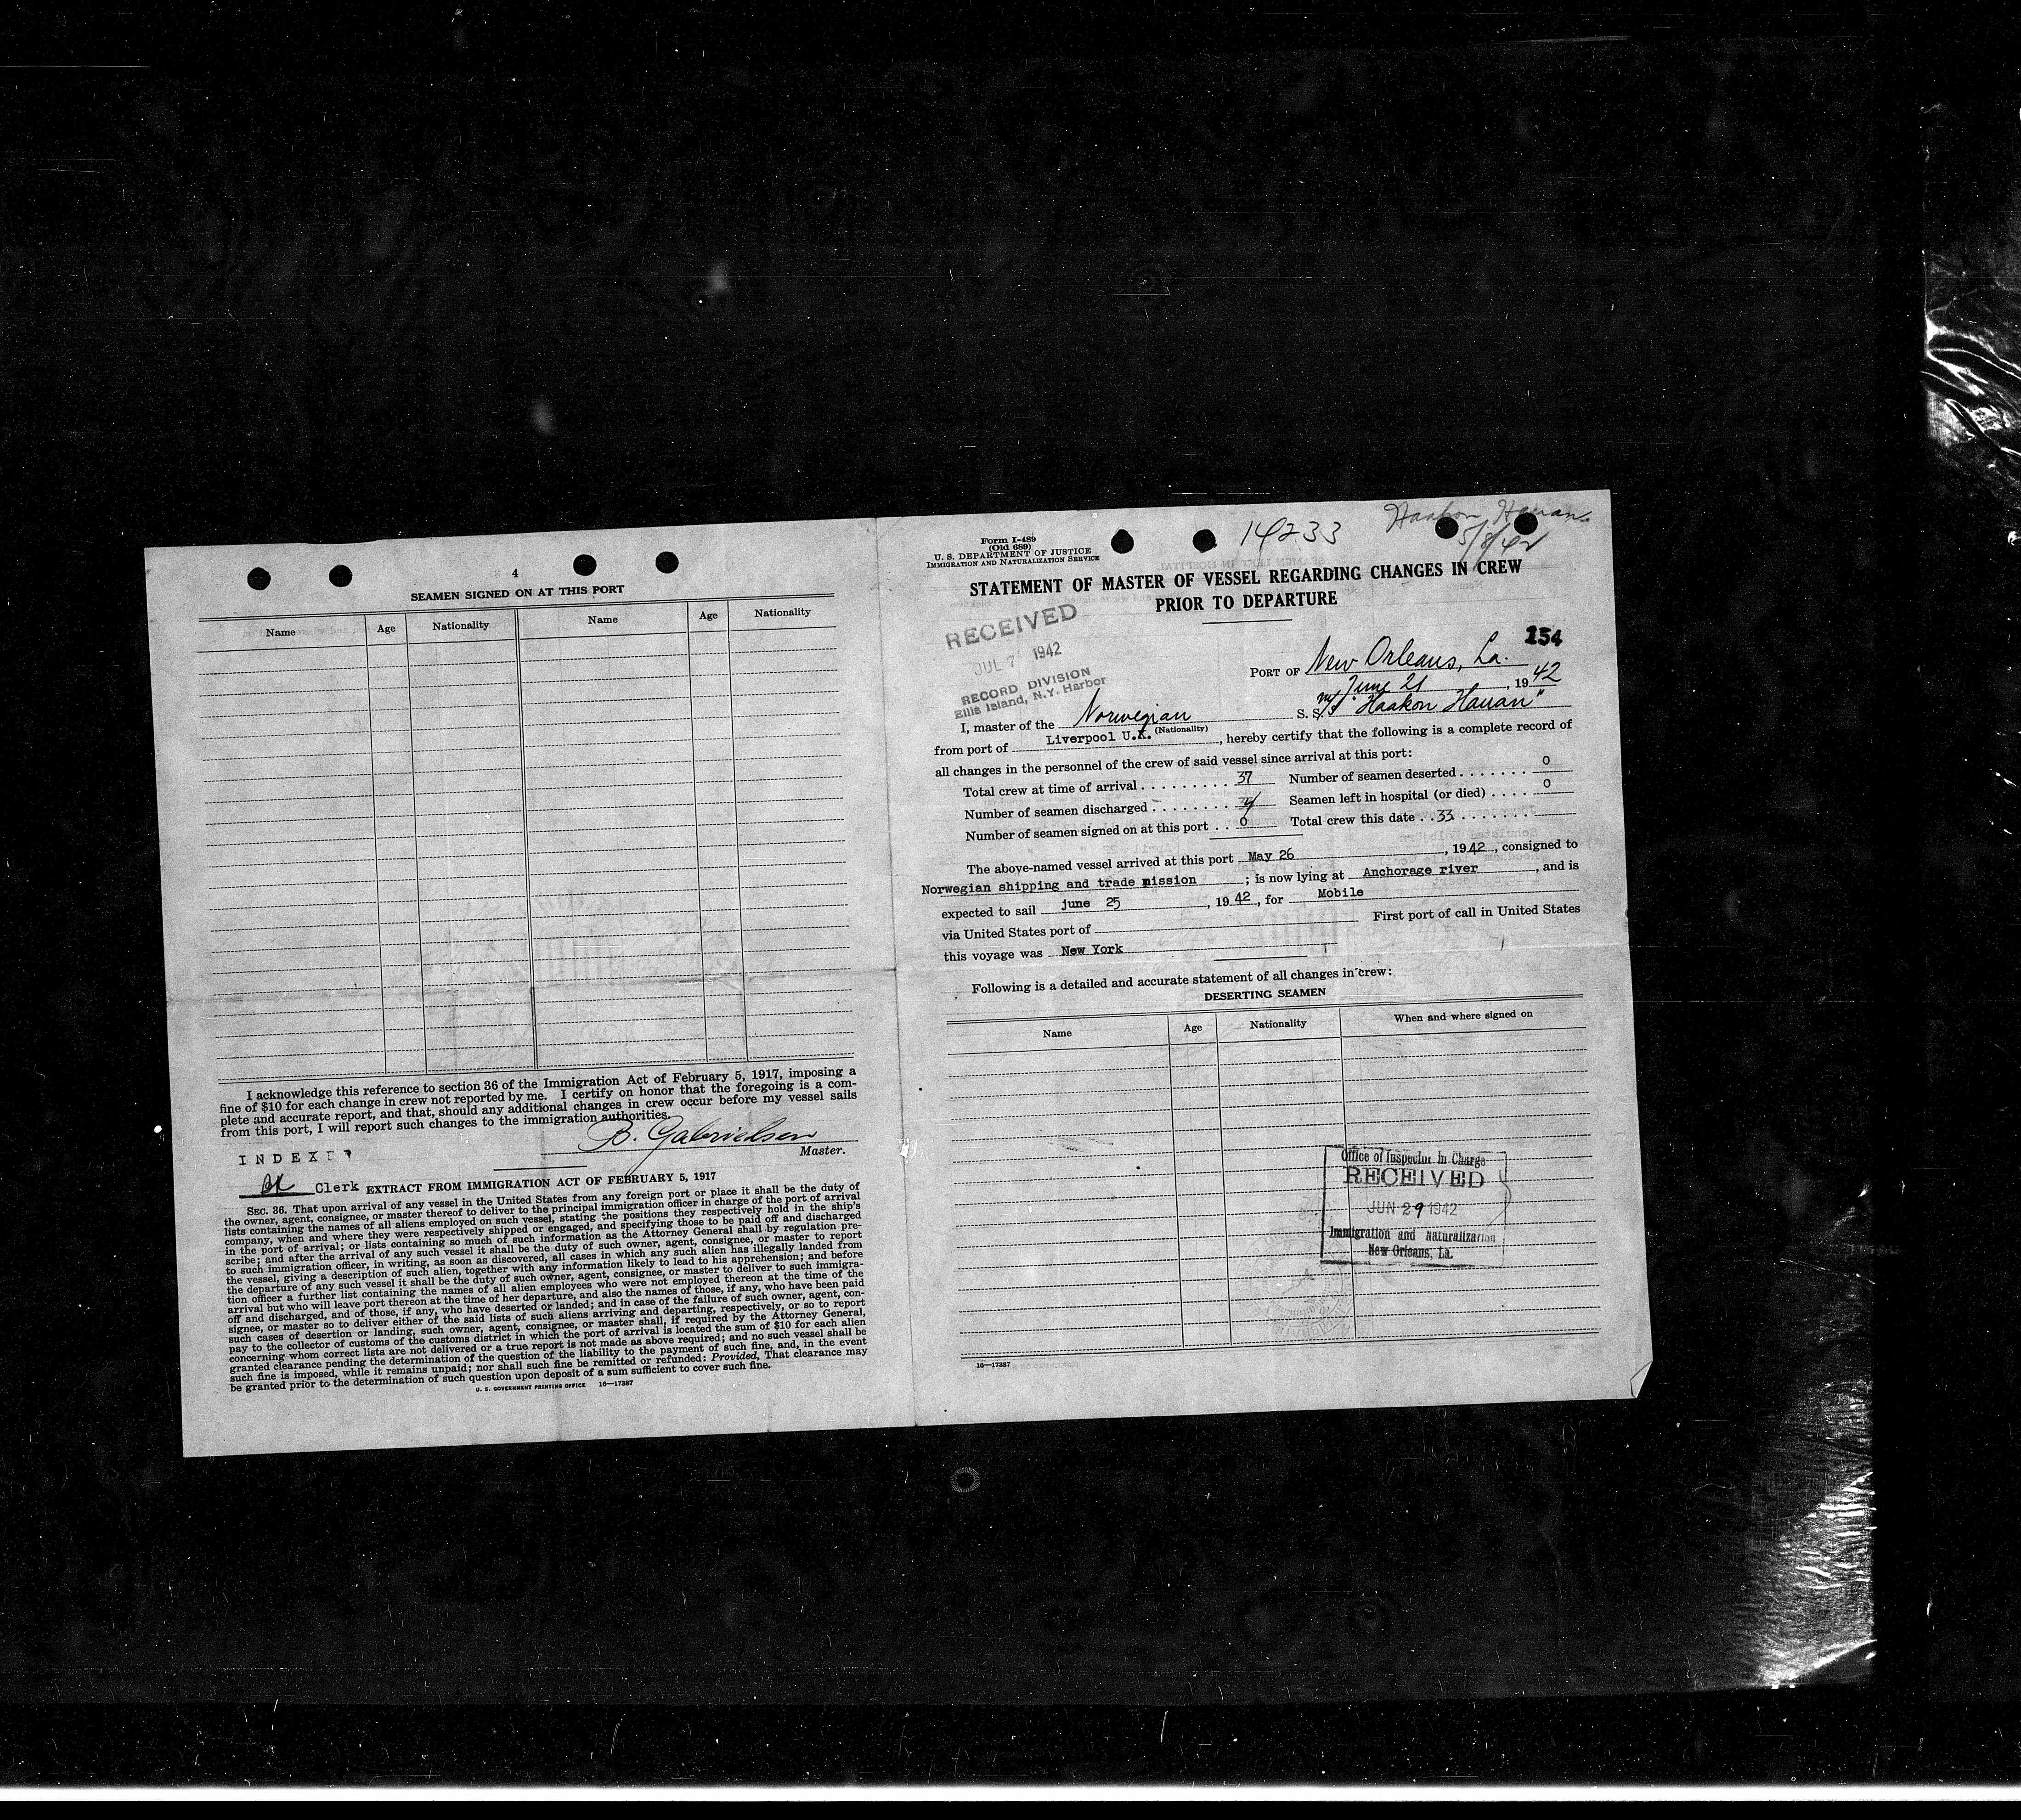 4
SEAMEN SIGNED ON AT THIS PORT
Name Age Nationality Name Age Nationality
I acknowledge this reference to section 36 of the Immigration Act of February 5, 1917, imposing a
fine of $10 for each change in crew not reported by me. I certify on honor that the foregoing is a com-
plete and accurate report, and that, should any additional changes in crew occur before my vessel sails
from this port, I will report such changes to the immigration authorities.
B. Gabrielsen
Master.
INDEXED
Clerk
EXTRACT FROM IMMIGRATION ACT OF FEBRUARY 5, 1917
SEC. 36. That upon arrival of any vessel in the United States from any foreign port or place it shall be the duty of
the owner, agent, consignee, or master thereof to deliver to the principal immigration officer in charge of the port of arrival
lists containing the names of all aliens employed on such vessel, stating the positions they respectively hold in the ship's
company, when and where they were respectively shipped or engaged, and specifying those to be paid off and discharged
in the port of arrival; or lists containing so much of such information as the Attorney General shall by regulation pre-
scribe; and after the arrival of any such vessel it shall be the duty of such owner, agent, consignee, or master to report
to such immigration officer, in writing, as soon as discovered, all cases in which any such alien has illegally landed from
the vessel, giving a description of such alien, together with any information likely to lead to his apprehension; and before
the departure of any such vessel it shall be the duty of such owner, agent, consignee, or master to deliver to such immigra-
tion officer a further list containing the names of all alien employees who were not employed thereon at the time of the
arrival but who will leave port thereon at the time of her departure, and also the names of those, if any, who have been paid
off and discharged, and of those, if any, who have deserted or landed; and in case of the failure of such owner, agent, con-
signee, or master so to deliver either of the said lists of such aliens arriving and departing, respectively, or so to report
such cases of desertion or landing, such owner, agent, consignee, or master shall, if required by the Attorney General,
pay to the collector of customs of the customs district in which the port of arrival is located the sum of $10 for each alien
concerning whom correct lists are not delivered or a true report is not made as above required; and no such vessel shall be
granted clearance pending the determination of the question of the liability to the payment of such fine, and, in the event
such fine is imposed, while it remains unpaid; nor shall such fine be remitted or refunded: Provided, That clearance may
be granted prior to the determination of such question upon deposit of a sum sufficient to cover such fine.
U. S. GOVERNMENT PRINTING OFFICE 16—17387
Form I-489
(Old 689)
U. S. DEPARTMENT OF JUSTICE
IMMIGRATION AND NATURALIZATION SERVICE
14233
Haakon Hauan
5/8/42
STATEMENT OF MASTER OF VESSEL REGARDING CHANGES IN CREW
PRIOR TO DEPARTURE
RECEIVED
JUL 7 1942
RECORD DIVISION
Ellis Island, N.Y. Harbor
154
PORT OF New Orleans, La.
June 21, 1942
I, master of the Norwegian S. S. M/S "Haakon Hauan"
(Nationality)
from port of Liverpool U.K., hereby certify that the following is a complete record of
all changes in the personnel of the crew of said vessel since arrival at this port:
Total crew at time of arrival 37 Number of seamen deserted 0
Number of seamen discharged 4 Seamen left in hospital (or died) 0
Number of seamen signed on at this port 0 Total crew this date 33
The above-named vessel arrived at this port May 26, 1942, consigned to
Norwegian shipping and trade mission; is now lying at Anchorage river, and is
expected to sail june 25, 1942, for Mobile
via United States port of First port of call in United States
this voyage was New York
Following is a detailed and accurate statement of all changes in crew:
DESERTING SEAMEN
Name Age Nationality When and where signed on
Office of Inspector In Charge
RECEIVED
JUN 29 1942
Immigration and Naturalization
New Orleans, La.
16—17387